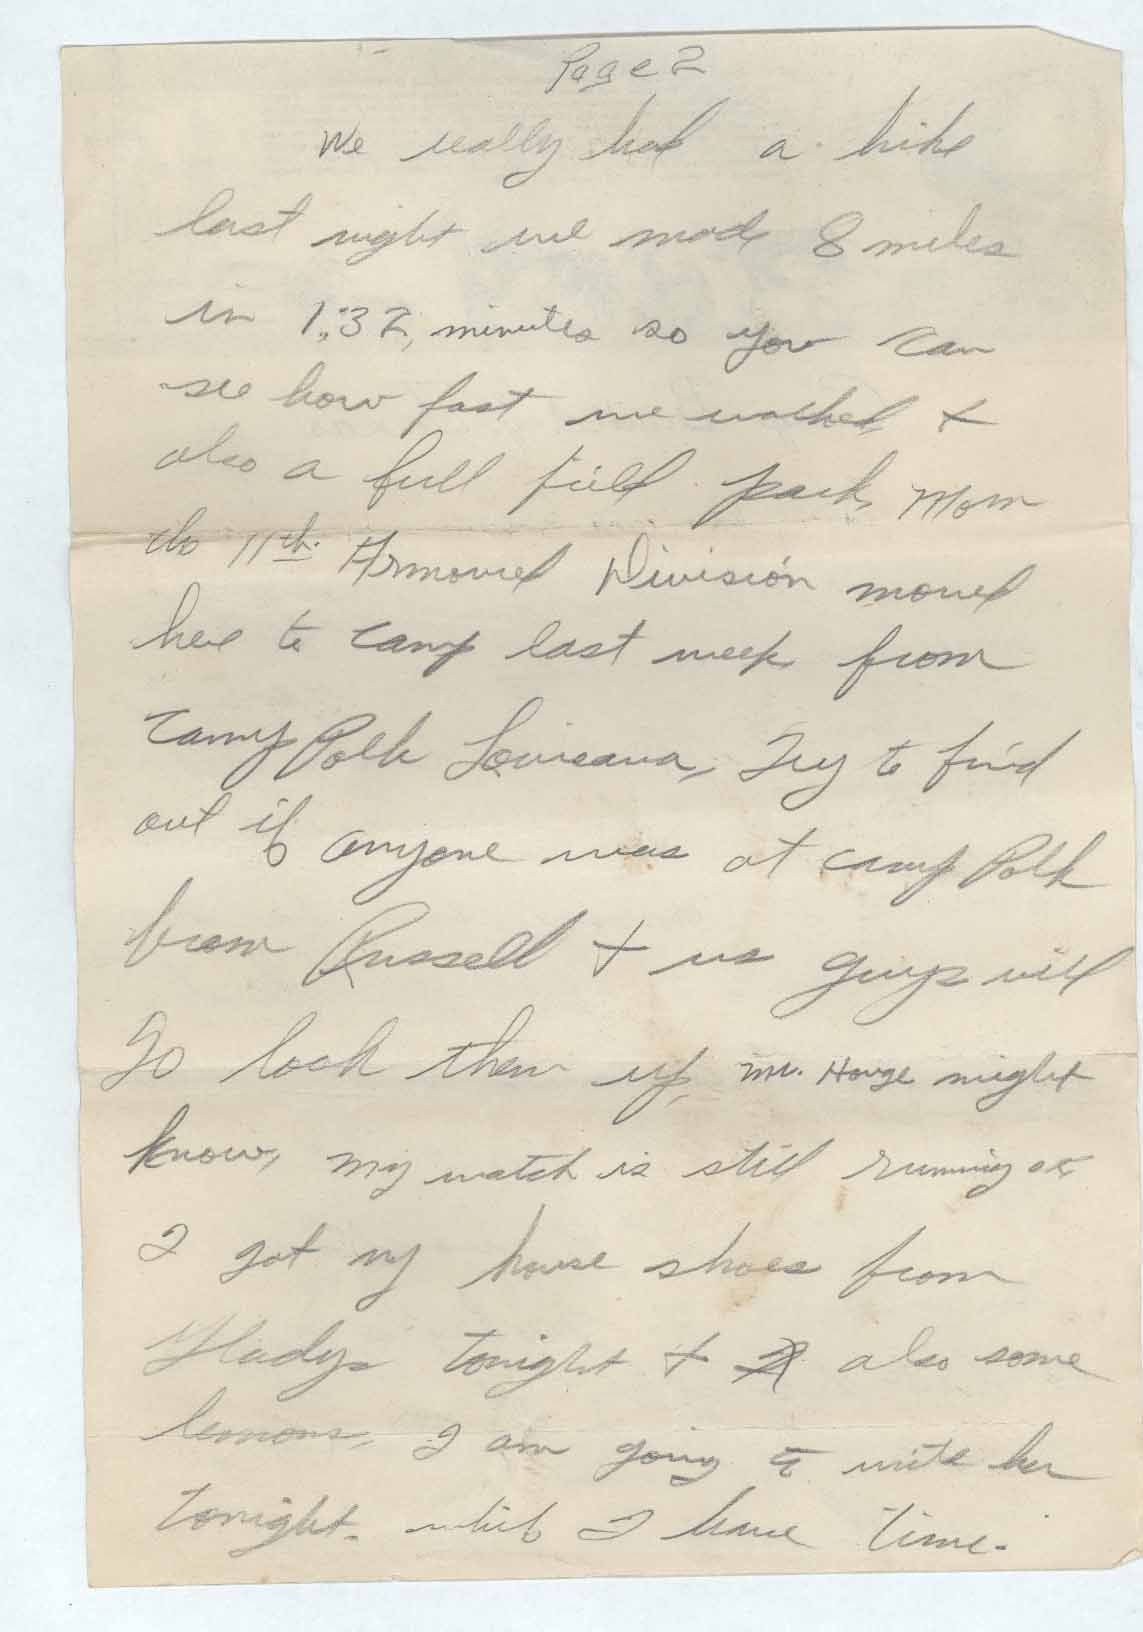 Page 2
We really had a hike
last night we made 8 miles
in 1:32, minutes so you can
see how fast we walked, +
also a full field pack, Mom
the 11th. Armoured Division moved
here to camp last week from
camp Polk Louiseana, Try to find
out if anyone was at camp Polk
from Russell + us guys will
go look them up, Mr. Houge might
know, my watch is still running ok
I got my house shoes from
Gladys tonight + also some
lemons, I am going to write her
tonight. while I have time.